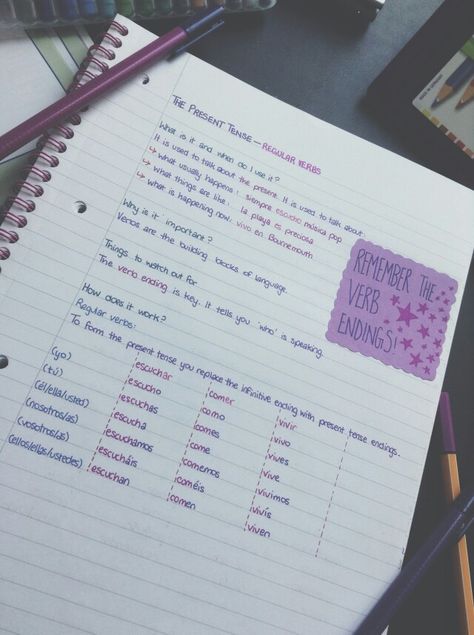 THE PRESENT TENSE - REGULAR VERBS
What is it and when do I use it?
It is used to talk about the present. It is used to talk about:
↳ what usually happens: siempre escucho música pop
↳ what things are like: la playa es preciosa
↳ what is happening now: vivo en Bournemouth
Why is it important?
Verbs are the building blocks of language.
Things to watch out for
The verb ending is key. It tells you 'who' is speaking.
How does it work?
Regular verbs:
To form the present tense you replace the infinitive ending with present tense endings.
escuchar comer vivir
(yo) escucho como vivo
(tú) escuchas comes vives
(él/ella/usted) escucha come vive
(nosotros/as) escuchamos comemos vivimos
(vosotros/as) escucháis coméis vivís
(ellos/ellas/ustedes) escuchan comen viven
REMEMBER THE
VERB
ENDINGS!